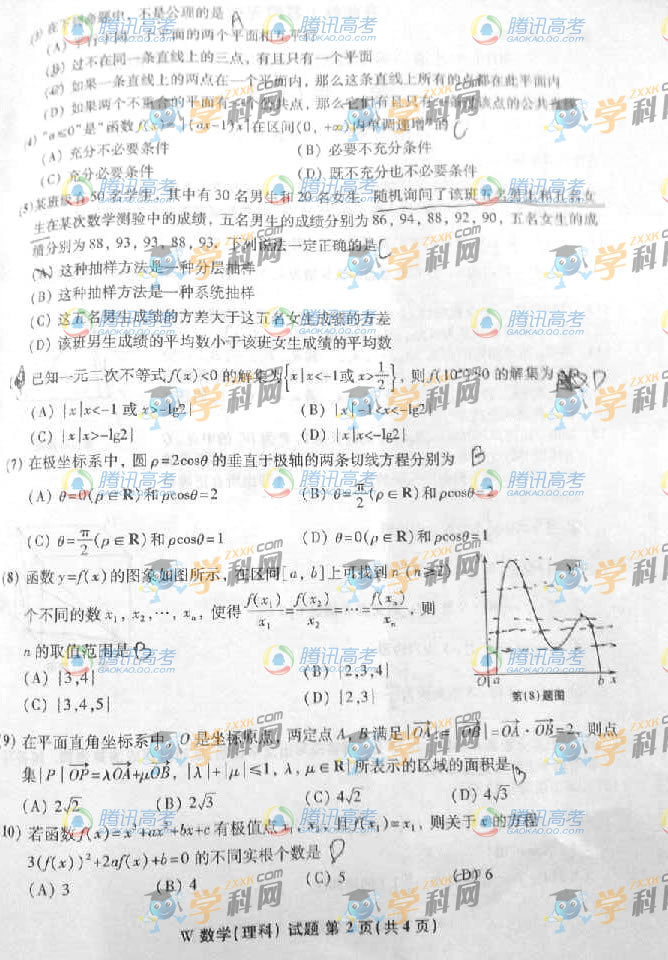 (3) 在下列命题中，不是公理的是 A
(A) 平行于同一个平面的两个平面相互平行
(B) 过不在同一条直线上的三点，有且只有一个平面
(C) 如果一条直线上的两点在一个平面内，那么这条直线上所有的点都在此平面内
(D) 如果两个不重合的平面有一个公共点，那么它们有且只有一条过该点的公共直线
(4) "a≤0"是"函数f(x)=|(ax-1)x|在区间(0, +∞)内单调递增"的 C
(A) 充分不必要条件 (B) 必要不充分条件
(C) 充分必要条件 (D) 既不充分也不必要条件
(5) 某班级有50名学生，其中有30名男生和20名女生. 随机询问了该班五名男生和五名女
生在某次数学测验中的成绩，五名男生的成绩分别为86, 94, 88, 92, 90，五名女生的成
绩分别为88, 93, 93, 88, 93. 下列说法一定正确的是 C
(A) 这种抽样方法是一种分层抽样
(B) 这种抽样方法是一种系统抽样
(C) 这五名男生成绩的方差大于这五名女生成绩的方差
(D) 该班男生成绩的平均数小于该班女生成绩的平均数
已知一元二次不等式f(x)<0的解集为{x|x<-1或x>1/2}，则f(10ˣ)>0的解集为 D
(A) {x|x<-1或x>-lg2} (B) {x|-1<x<-lg2}
(C) {x|x>-lg2} (D) {x|x<-lg2}
(7) 在极坐标系中，圆ρ=2cosθ的垂直于极轴的两条切线方程分别为 B
(A) θ=0(ρ∈R)和ρcosθ=2 (B) θ=π/2(ρ∈R)和ρcosθ=2
(C) θ=π/2(ρ∈R)和ρcosθ=1 (D) θ=0(ρ∈R)和ρcosθ=1
(8) 函数y=f(x)的图象如图所示，在区间[a, b]上可找到n(n≥2)
个不同的数x₁, x₂, …, xₙ, 使得f(x₁)/x₁=f(x₂)/x₂=…=f(xₙ)/xₙ, 则
n的取值范围是 B
(A) {3,4} (B) {2,3,4}
(C) {3,4,5} (D) {2,3}
O a b x
第(8)题图
(9) 在平面直角坐标系中，O是坐标原点，两定点A, B满足|OA|=|OB|=OA·OB=2, 则点
集{P|OP=λOA+μOB, |λ|+|μ|≤1, λ, μ∈R}所表示的区域的面积是 D
(A) 2√2 (B) 2√3 (C) 4√2 (D) 4√3
10) 若函数f(x)=x³+ax²+bx+c有极值点x₁, x₂, 且f(x₁)=x₁, 则关于x的方程
3(f(x))²+2af(x)+b=0的不同实根个数是
(A) 3 (B) 4 (C) 5 (D) 6
W 数学(理科) 试题 第2页(共4页)